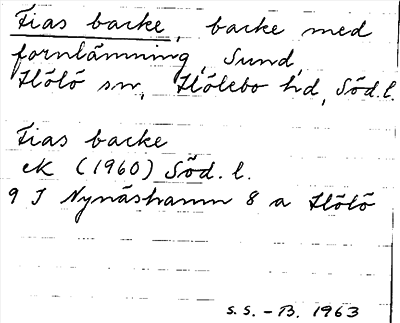 Fias backe, backe med
fornlämning, Sund,
Hölö sn, Hölebo hd, Söd.l.
Fias backe
ek (1960) Söd. l.
9 I Nynäshamn 8 a Hölö
S.S.-B. 1963